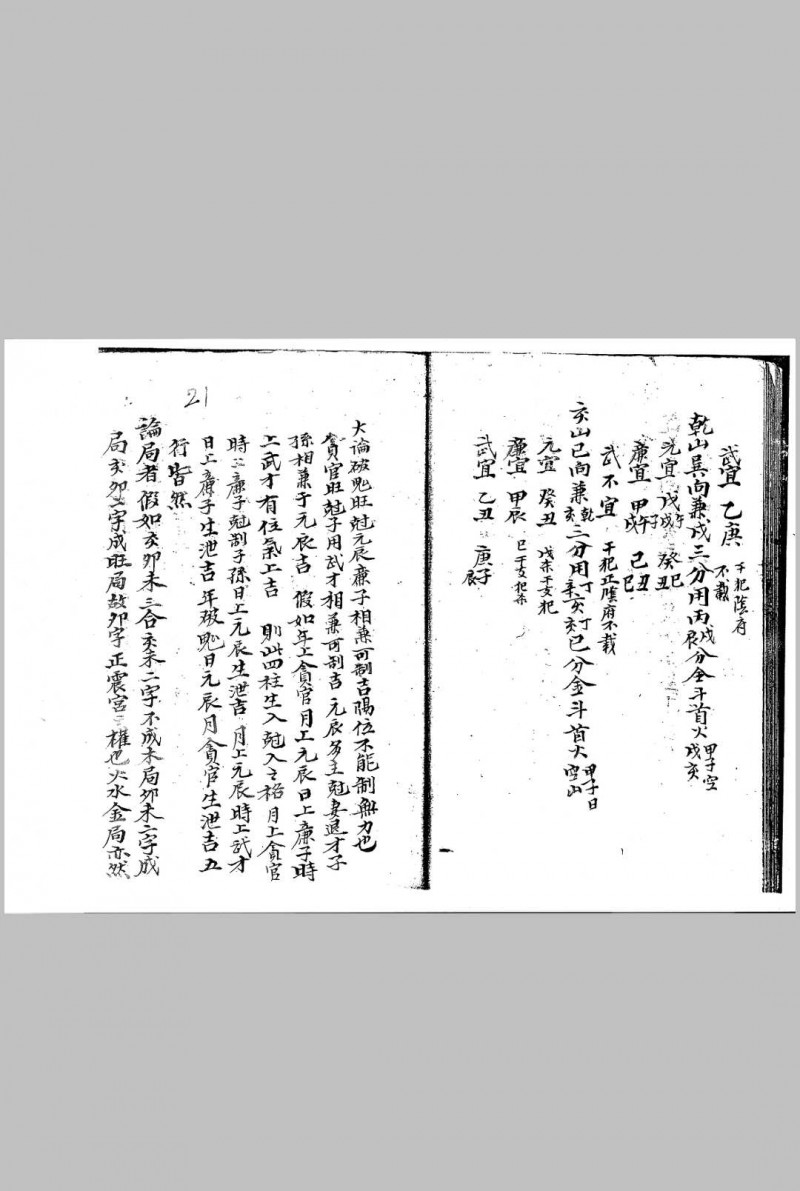 武宜 乙庚 干犯陰府不載
乾山巽向兼戌三分用丙戌丙辰分金斗首火 甲子空戌亥
元宜 戊午戊戌 癸巳癸丑
廉宜 甲子甲午甲戌 己丑己巳
武不宜 干犯正陰府不載
亥山巳向兼乾三分用丁亥丁巳分金斗首火 甲子日空山
元宜 癸丑 戊癸干支犯
廉宜 甲辰 巳干支犯
武宜 乙丑 庚子庚辰
大論破鬼旺尅元辰廉子相兼可制吉陽位不能制無力也
貪官旺尅子用武才相兼可制吉 元辰多主尅妻退才子
孫相兼于元辰吉 假如年上貪官月上元辰日上廉子時
上武才有位氣上吉 則此四柱生入尅入之格 月上貪官
時上廉子尅制子孫日上元辰生泄吉 月上元辰時上武才
日上廉子生泄吉 年破鬼日元辰月貪官生泄吉 五
行皆然
論局者假如亥卯未三合亥未二字不成木局卯未二字成
局亥卯二字成旺局故卯字正震宮 權也火水金局亦然
21